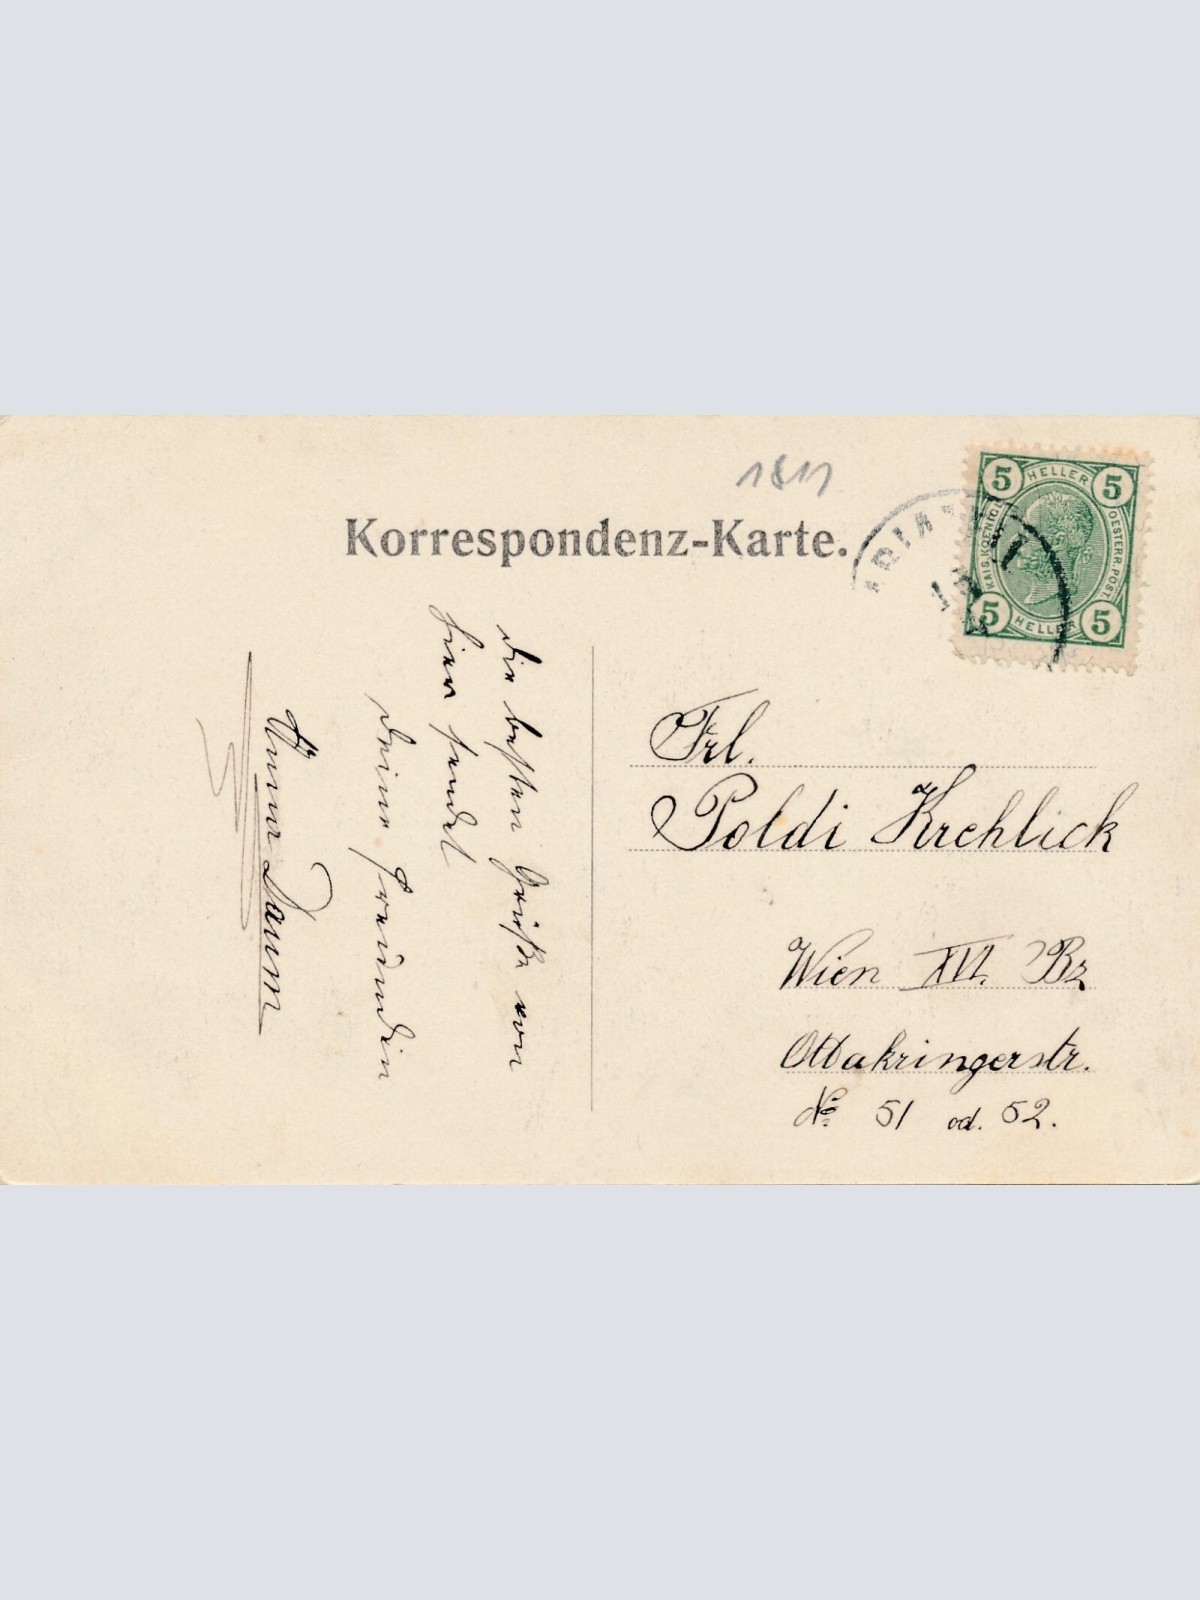 1811
Korrespondenz-Karte.
5 HELLER 5
KAIS. KOENIGL. OESTERR. POST.
5 HELLER 5
Frl.
Poldi Krehlick
Wien XVI. Bz
Ottakringerstr.
No 51 od. 52.
die besten Grüße von
hier sendet
deine Freundin
Anna Daum